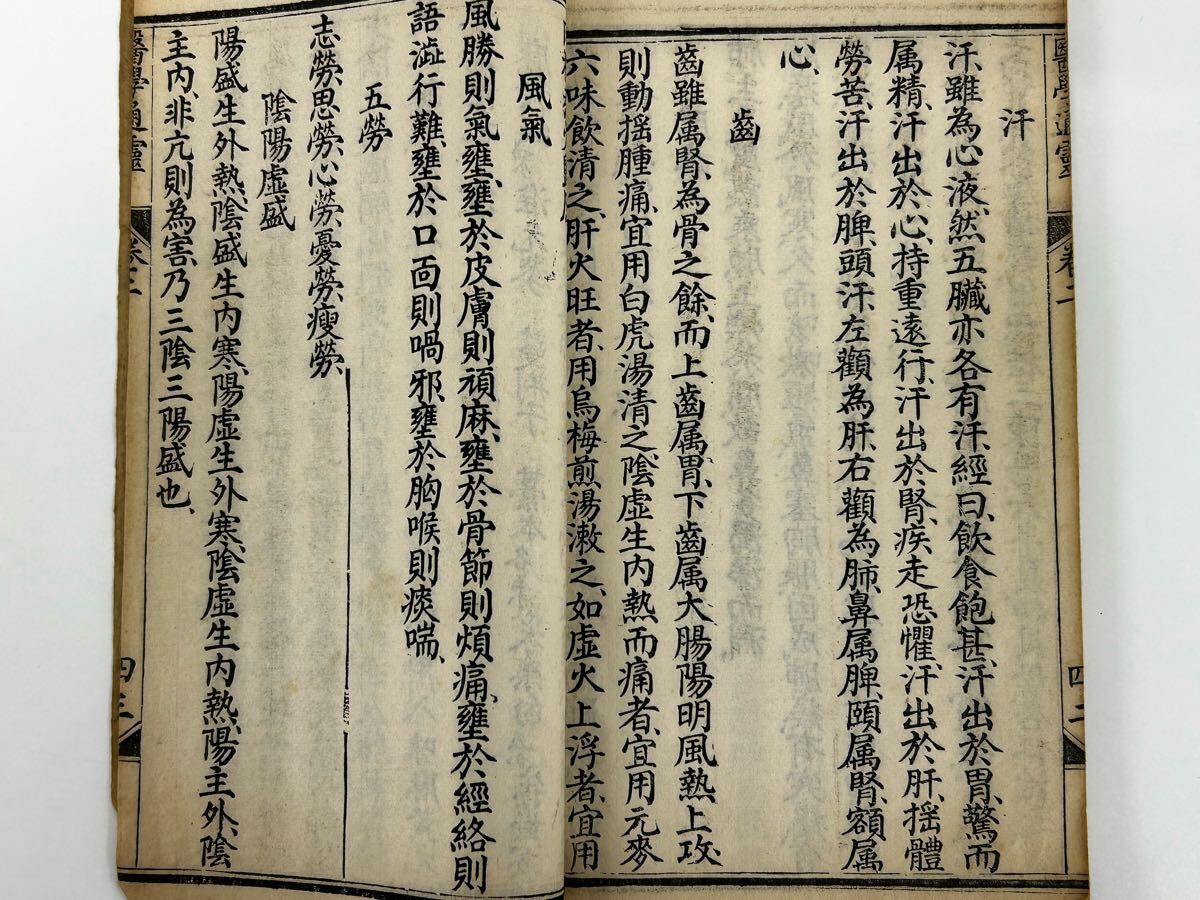 醫學通靈 卷二 四二
汗
汗雖為心液、然五臟亦各有汗、經曰、飲食飽甚、汗出於胃、驚而
属精、汗出於心、持重遠行、汗出於腎、疾走恐懼、汗出於肝、揺體
勞苦、汗出於脾、頭汗、左顴為肝、右顴為肺、鼻属脾、頤属腎、額属
心、
齒
齒雖属腎、為骨之餘、而上齒属胃、下齒属大腸陽明風熱上攻
則動揺腫痛、宜用白虎湯清之、陰虛生內熱而痛者、宜用元麥
六味飲清之、肝火旺者、用烏梅煎湯漱之、如虛火上浮者、宜用
風氣
風勝則氣壅、壅於皮膚則頑麻、壅於骨節則煩痛、壅於經絡則
語澁行難、壅於口面則喎邪、壅於胸喉則痰喘、
五勞
志勞、思勞、心勞、憂勞、瘦勞、
陰陽虛盛
陽盛生外熱、陰盛生內寒、陽虛生外寒、陰虛生內熱、陽主外、陰
主內、非亢則為害、乃三陰三陽盛也、
醫學通靈 四三